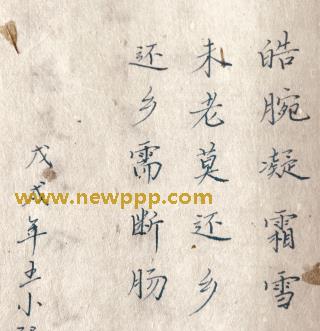 皓腕凝霜雪
未老莫还乡
还乡需断肠
戊戌年王小
www.newppp.com